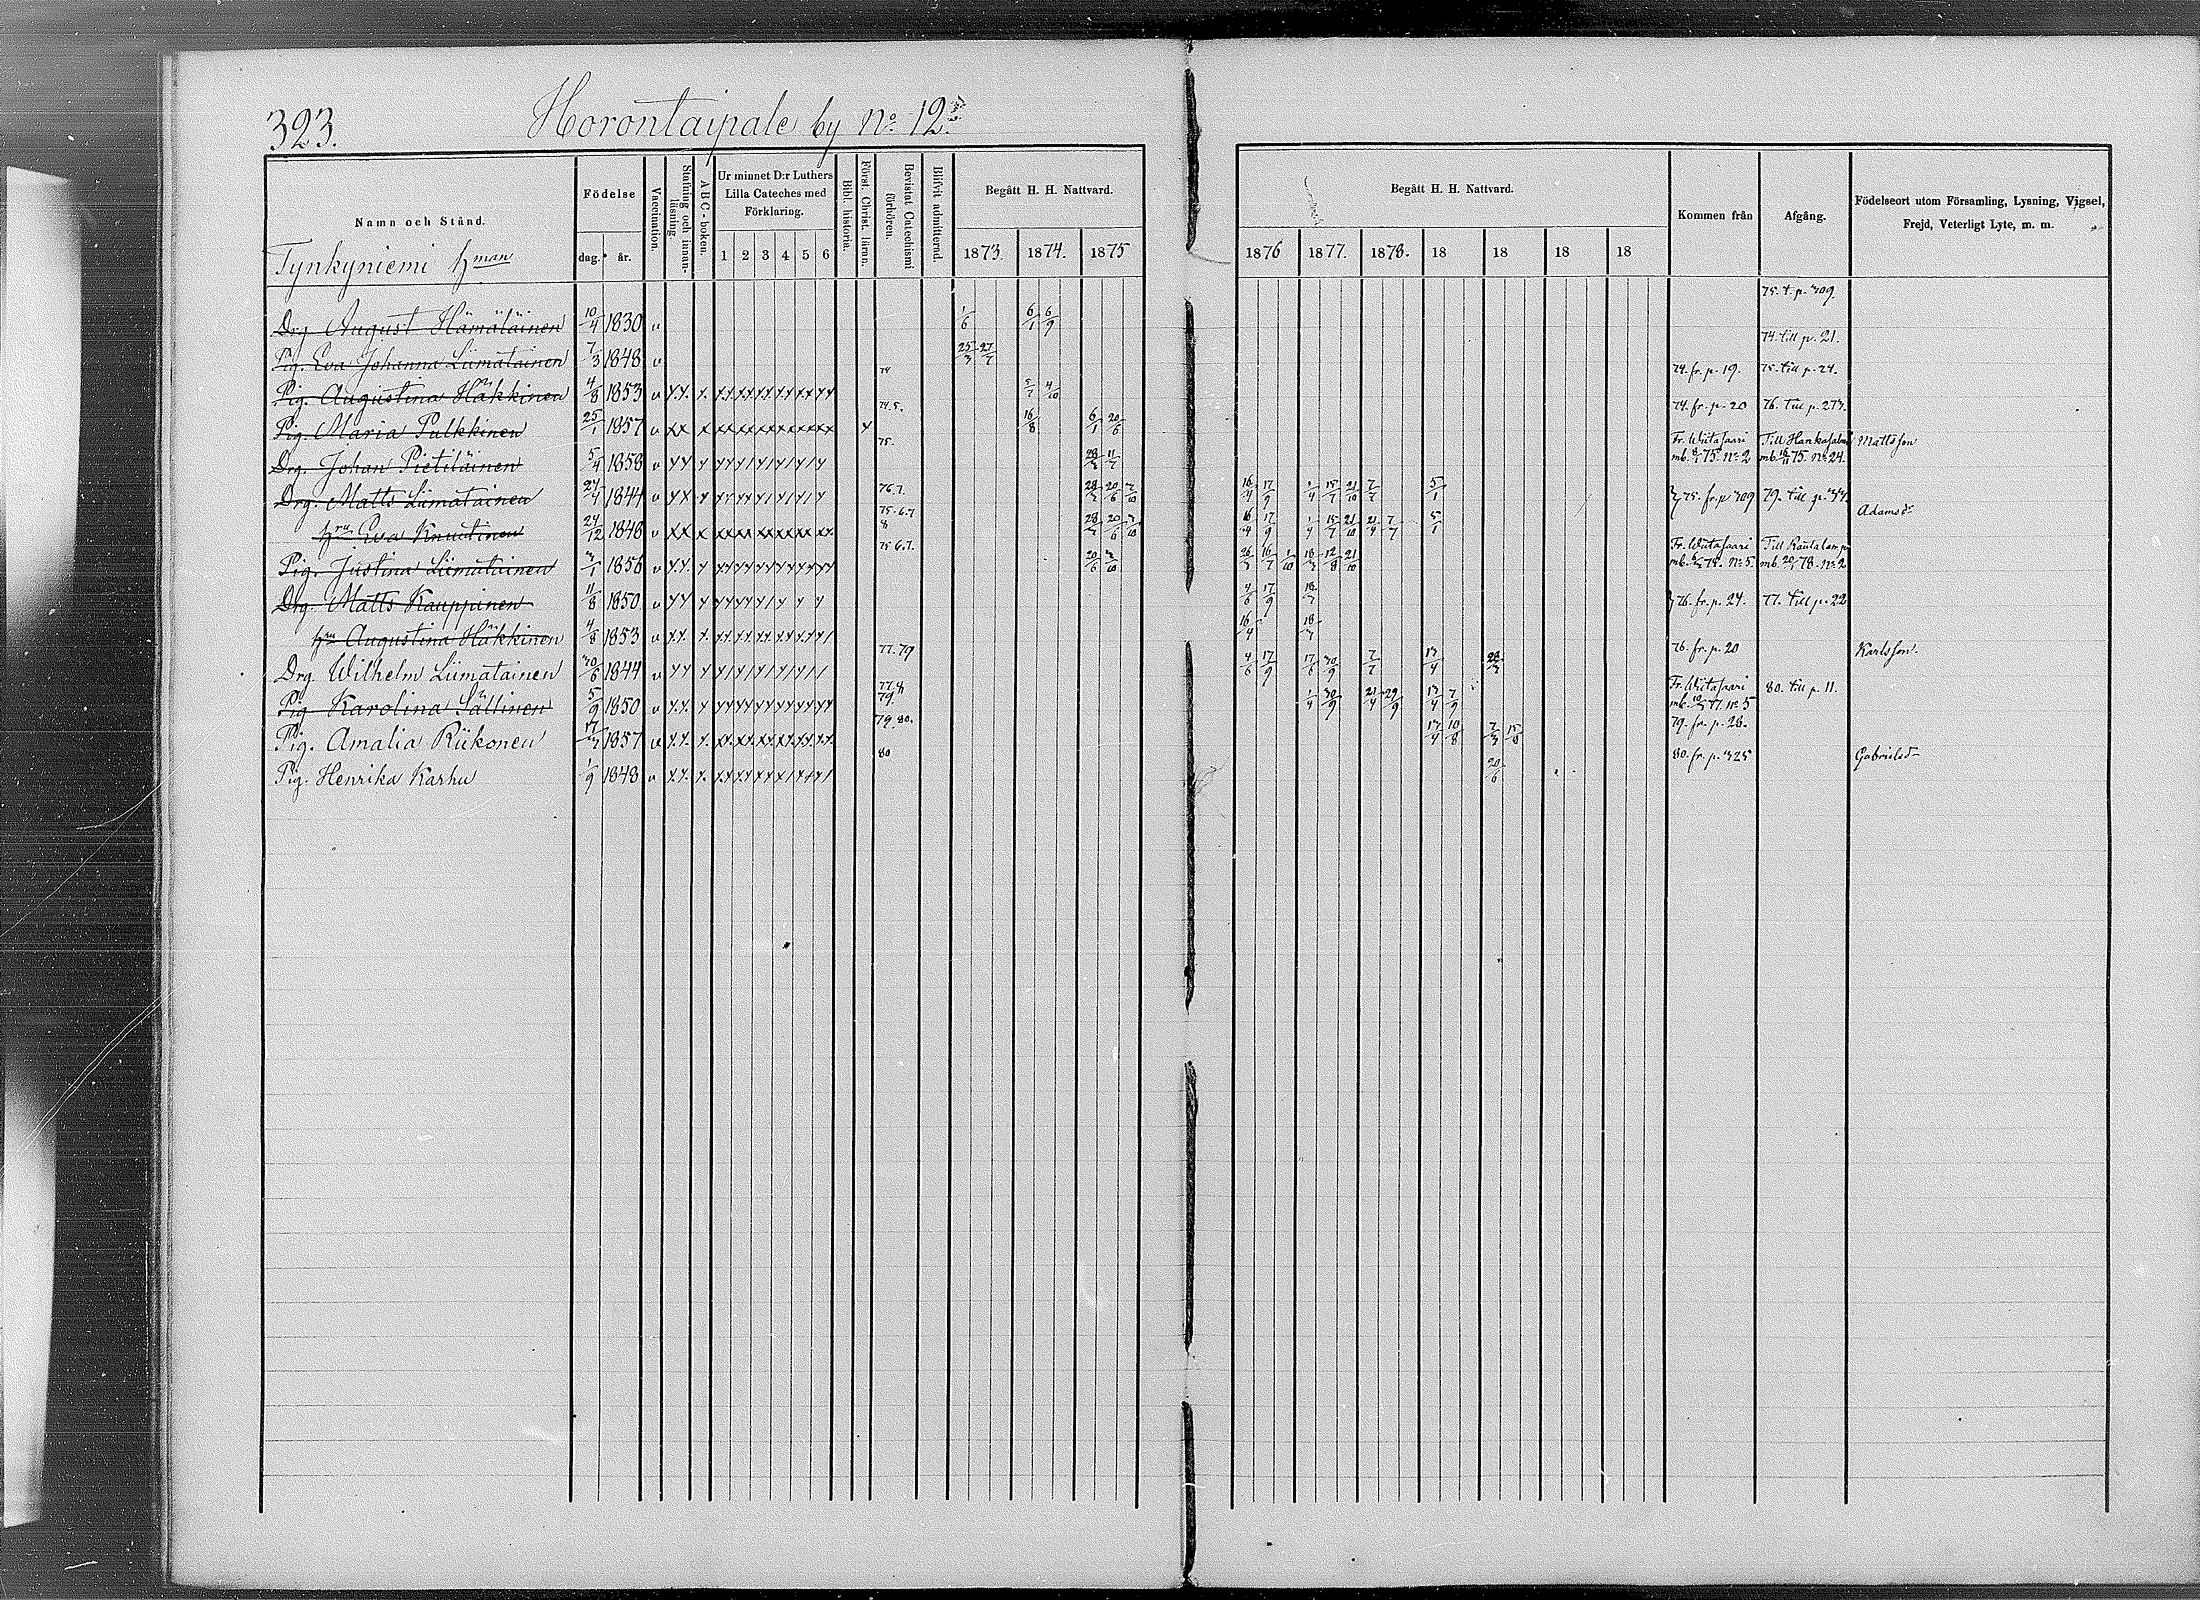 323.
Horontaipale by No. 12.
Namn och Stånd.
Födelse
dag. år.
Vaccination.
Stafning och innan-läsning
ABC-boken.
Ur minnet D:r Luthers Lilla Cateches med Förklaring.
1 2 3 4 5 6
Bibl. historia.
Först. Christ. läran.
Bevistat Catechismi förhören.
Blifvit admitterad.
Begått H. H. Nattvard.
1873. 1874. 1875
Begått H. H. Nattvard.
1876 1877. 1878. 18 18 18 18
Kommen från
Afgång.
Födelseort utom Församling, Lysning, Vigsel, Frejd, Veterligt Lyte, m. m.
Tynkyniemi hman
Drg. August Hämäläinen 10/4 1830 v 1/6 6/1 6/9 75. t. p. 309.
Pig. Eva Johanna Liimatainen 7/3 1848 v 25/3 27/7 74. till p. 21.
Pig. Augustina Häkkinen 4/8 1853 v 74 5/7 4/10 74. fr. p. 19. 75. till p. 24.
Pig. Maria Pulkkinen 25/1 1857 v 74.5. 16/8 6/1 20/6 74. fr. p. 20 76. till p. 273.
Drg. Johan Pietiläinen 5/4 1858 v 75. 28/3 11/7 Fr. Wiitasaari mb. 75. No 2 Till Hankasalmi mb. 16/11 75. No 24. Mattsson
Drg. Matts Liimatainen 24/4 1844 v 76.7. 28/3 20/6 3/10 16/4 17/9 1/4 15/7 21/10 7/7 5/1 75. fr. p. 309 79. till p.
hru Eva Knuutinen 24/12 1848 v 75.6.7 8 28/3 20/6 3/10 16/4 17/9 1/4 15/7 21/10 21/4 7/7 5/1 Adamsdr
Pig. Justina Liimatainen 3/1 1856 v 75 6.7. 20/6 3/10 26/3 16/7 1/10 18/3 12/8 21/10 Fr. Wiitasaari mb. 75. No 5. Till Rautalampi mb. 78. No 2
Drg. Matts Kauppinen 11/8 1850 v 4/6 17/9 18/3 76. fr. p. 24. 77. till p. 22
hru Augustina Häkkinen 4/8 1853 v 16/4 18/3
Drg. Wilhelm Liimatainen 30/6 1844 v 77.79 4/6 17/9 17/6 30/9 7/7 13/4 28/3 76. fr. p. 20 Karlsson.
Pig. Karolina Sällinen 5/9 1850 v 77.8 79. 1/4 30/9 21/4 29/9 13/4 7/9 Fr. Wiitasaari mb. 77. No 5 80. till p. 11.
Pig. Amalia Riikonen 17/3 1857 v 79. 80. 13/4 10/8 7/3 15/8 79. fr. p. 28.
Pig. Henrika Karhu 1/9 1848 v 80 20/6 80. fr. p. 325 Gabrielsdr